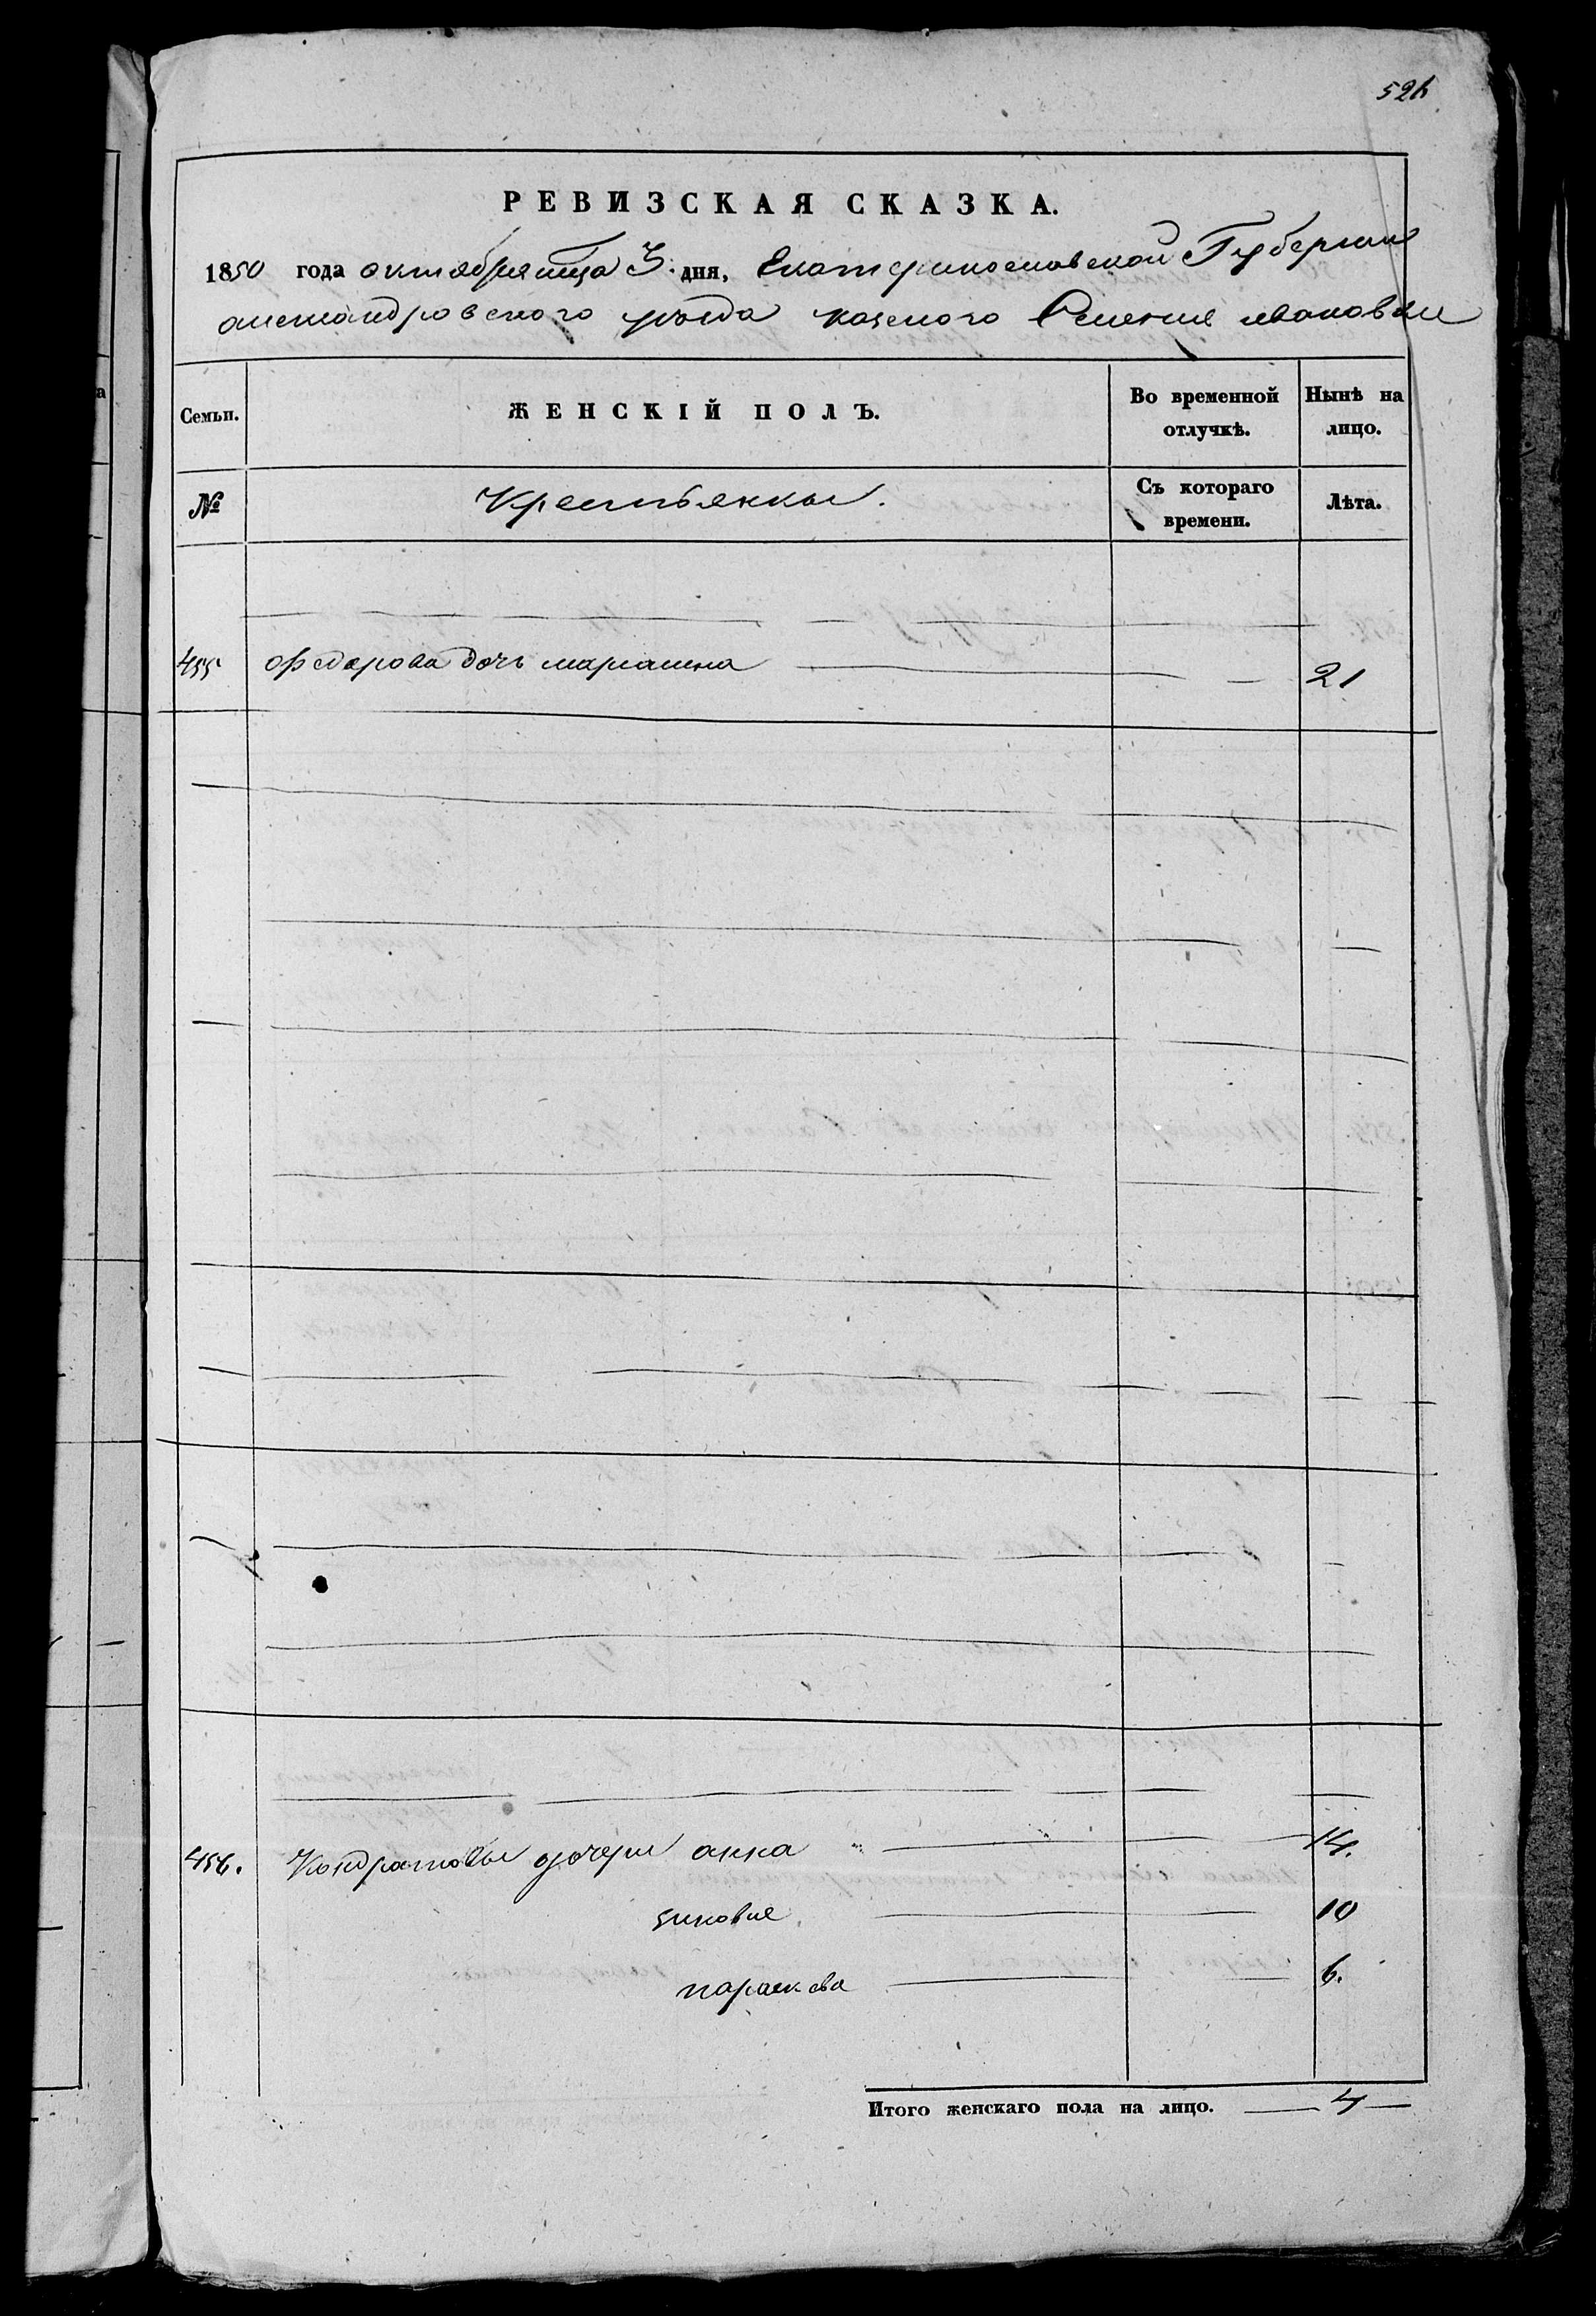 РЕВИЗСКАЯ СКАЗКА.
1850 года октября мца 3. дня, Екатеринославской Губернии
александровского уезда казеного Селения ивановки
Семьи. ЖЕНСКІЙ ПОЛЪ. Во временной отлучкѣ. Нынѣ на лицо.
№ Крестьянки. Съ котораго времени. Лѣта.
455 Федорова дочь марианна 21
456. Кондратовы дочери анна 14.
зиновия 10
параскева 6.
Итого женскаго пола на лицо. 4